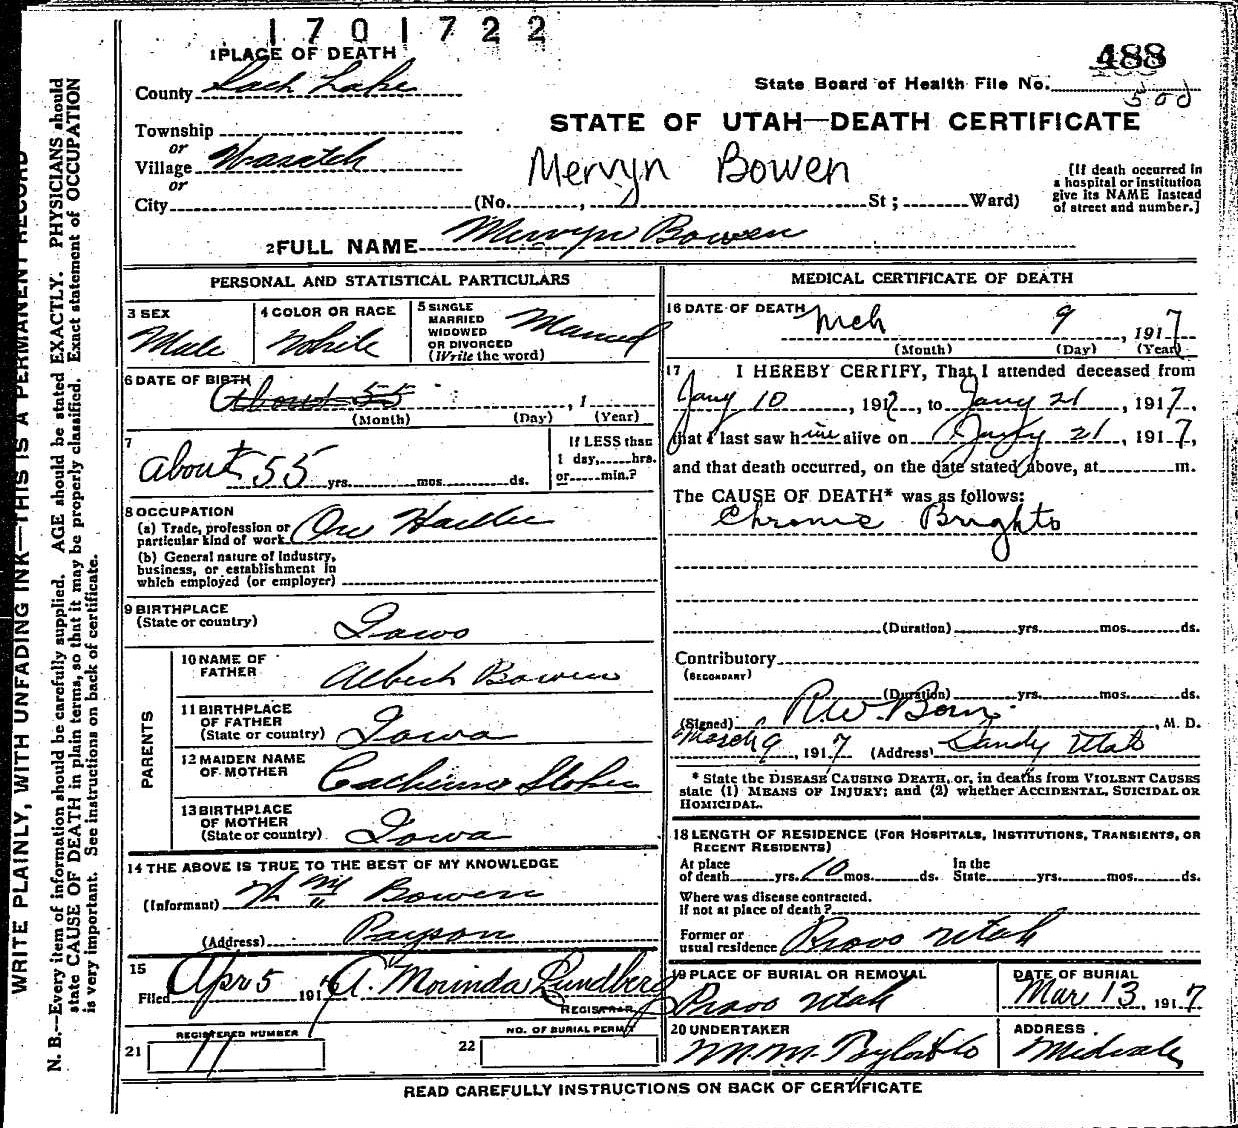 1701722
1 PLACE OF DEATH
488
County Sach Lake
State Board of Health File No.
500
Township
or
Village Wasatch
or
City
STATE OF UTAH—DEATH CERTIFICATE
Mervyn Bowen
(No. , St ; Ward)
[If death occurred in a hospital or institution give its NAME instead of street and number.]
2 FULL NAME Mervyn Bowen
PERSONAL AND STATISTICAL PARTICULARS
3 SEX
Male
4 COLOR OR RACE
White
5 SINGLE
MARRIED
WIDOWED
OR DIVORCED
(Write the word)
Married
6 DATE OF BIRTH
About 55 , 1
(Month) (Day) (Year)
7
About 55 yrs. mos. ds.
If LESS than
1 day, hrs.
or min.?
8 OCCUPATION
(a) Trade, profession or
particular kind of work Ore
(b) General nature of Industry,
business, or establishment in
which employed (or employer)
9 BIRTHPLACE
(State or country) Iowa
PARENTS
10 NAME OF
FATHER Albert Bowen
11 BIRTHPLACE
OF FATHER
(State or country) Iowa
12 MAIDEN NAME
OF MOTHER Catherine
13 BIRTHPLACE
OF MOTHER
(State or country) Iowa
14 THE ABOVE IS TRUE TO THE BEST OF MY KNOWLEDGE
(Informant) Bowen
(Address) Payson
15
Filed Apr 5 1917 A. Morinda Lundberg
REGISTRAR
REGISTERED NUMBER
21 11
NO. OF BURIAL PERMIT
22
MEDICAL CERTIFICATE OF DEATH
16 DATE OF DEATH
Mch 9 , 1917
(Month) (Day) (Year)
17 I HEREBY CERTIFY, That I attended deceased from
Jany 10 , 1917, to Jany 21 , 1917,
that I last saw him alive on Jany 21 , 1917,
and that death occurred, on the date stated above, at m.
The CAUSE OF DEATH* was as follows:
Chronic Brights
(Duration) yrs. mos. ds.
Contributory
(SECONDARY)
(Duration) yrs. mos. ds.
(Signed) R.W. , M. D.
March 9 , 1917 (Address) Sandy Utah
* State the DISEASE CAUSING DEATH, or, in deaths from VIOLENT CAUSES
state (1) MEANS OF INJURY; and (2) whether ACCIDENTAL, SUICIDAL OR
HOMICIDAL.
18 LENGTH OF RESIDENCE (FOR HOSPITALS, INSTITUTIONS, TRANSIENTS, OR
RECENT RESIDENTS)
At place
of death yrs. 10 mos. ds.
In the
State yrs. mos. ds.
Where was disease contracted.
If not at place of death?
Former or
usual residence Provo Utah
19 PLACE OF BURIAL OR REMOVAL
Provo Utah
DATE OF BURIAL
Mar 13 , 1917
20 UNDERTAKER
ADDRESS
Midvale
READ CAREFULLY INSTRUCTIONS ON BACK OF CERTIFICATE
WRITE PLAINLY, WITH UNFADING INK—THIS IS A PERMANENT RECORD
N. B.—Every item of information should be carefully supplied. AGE should be stated EXACTLY. PHYSICIANS should
state CAUSE OF DEATH in plain terms, so that it may be properly classified. Exact statement of OCCUPATION
is very important. See instructions on back of certificate.